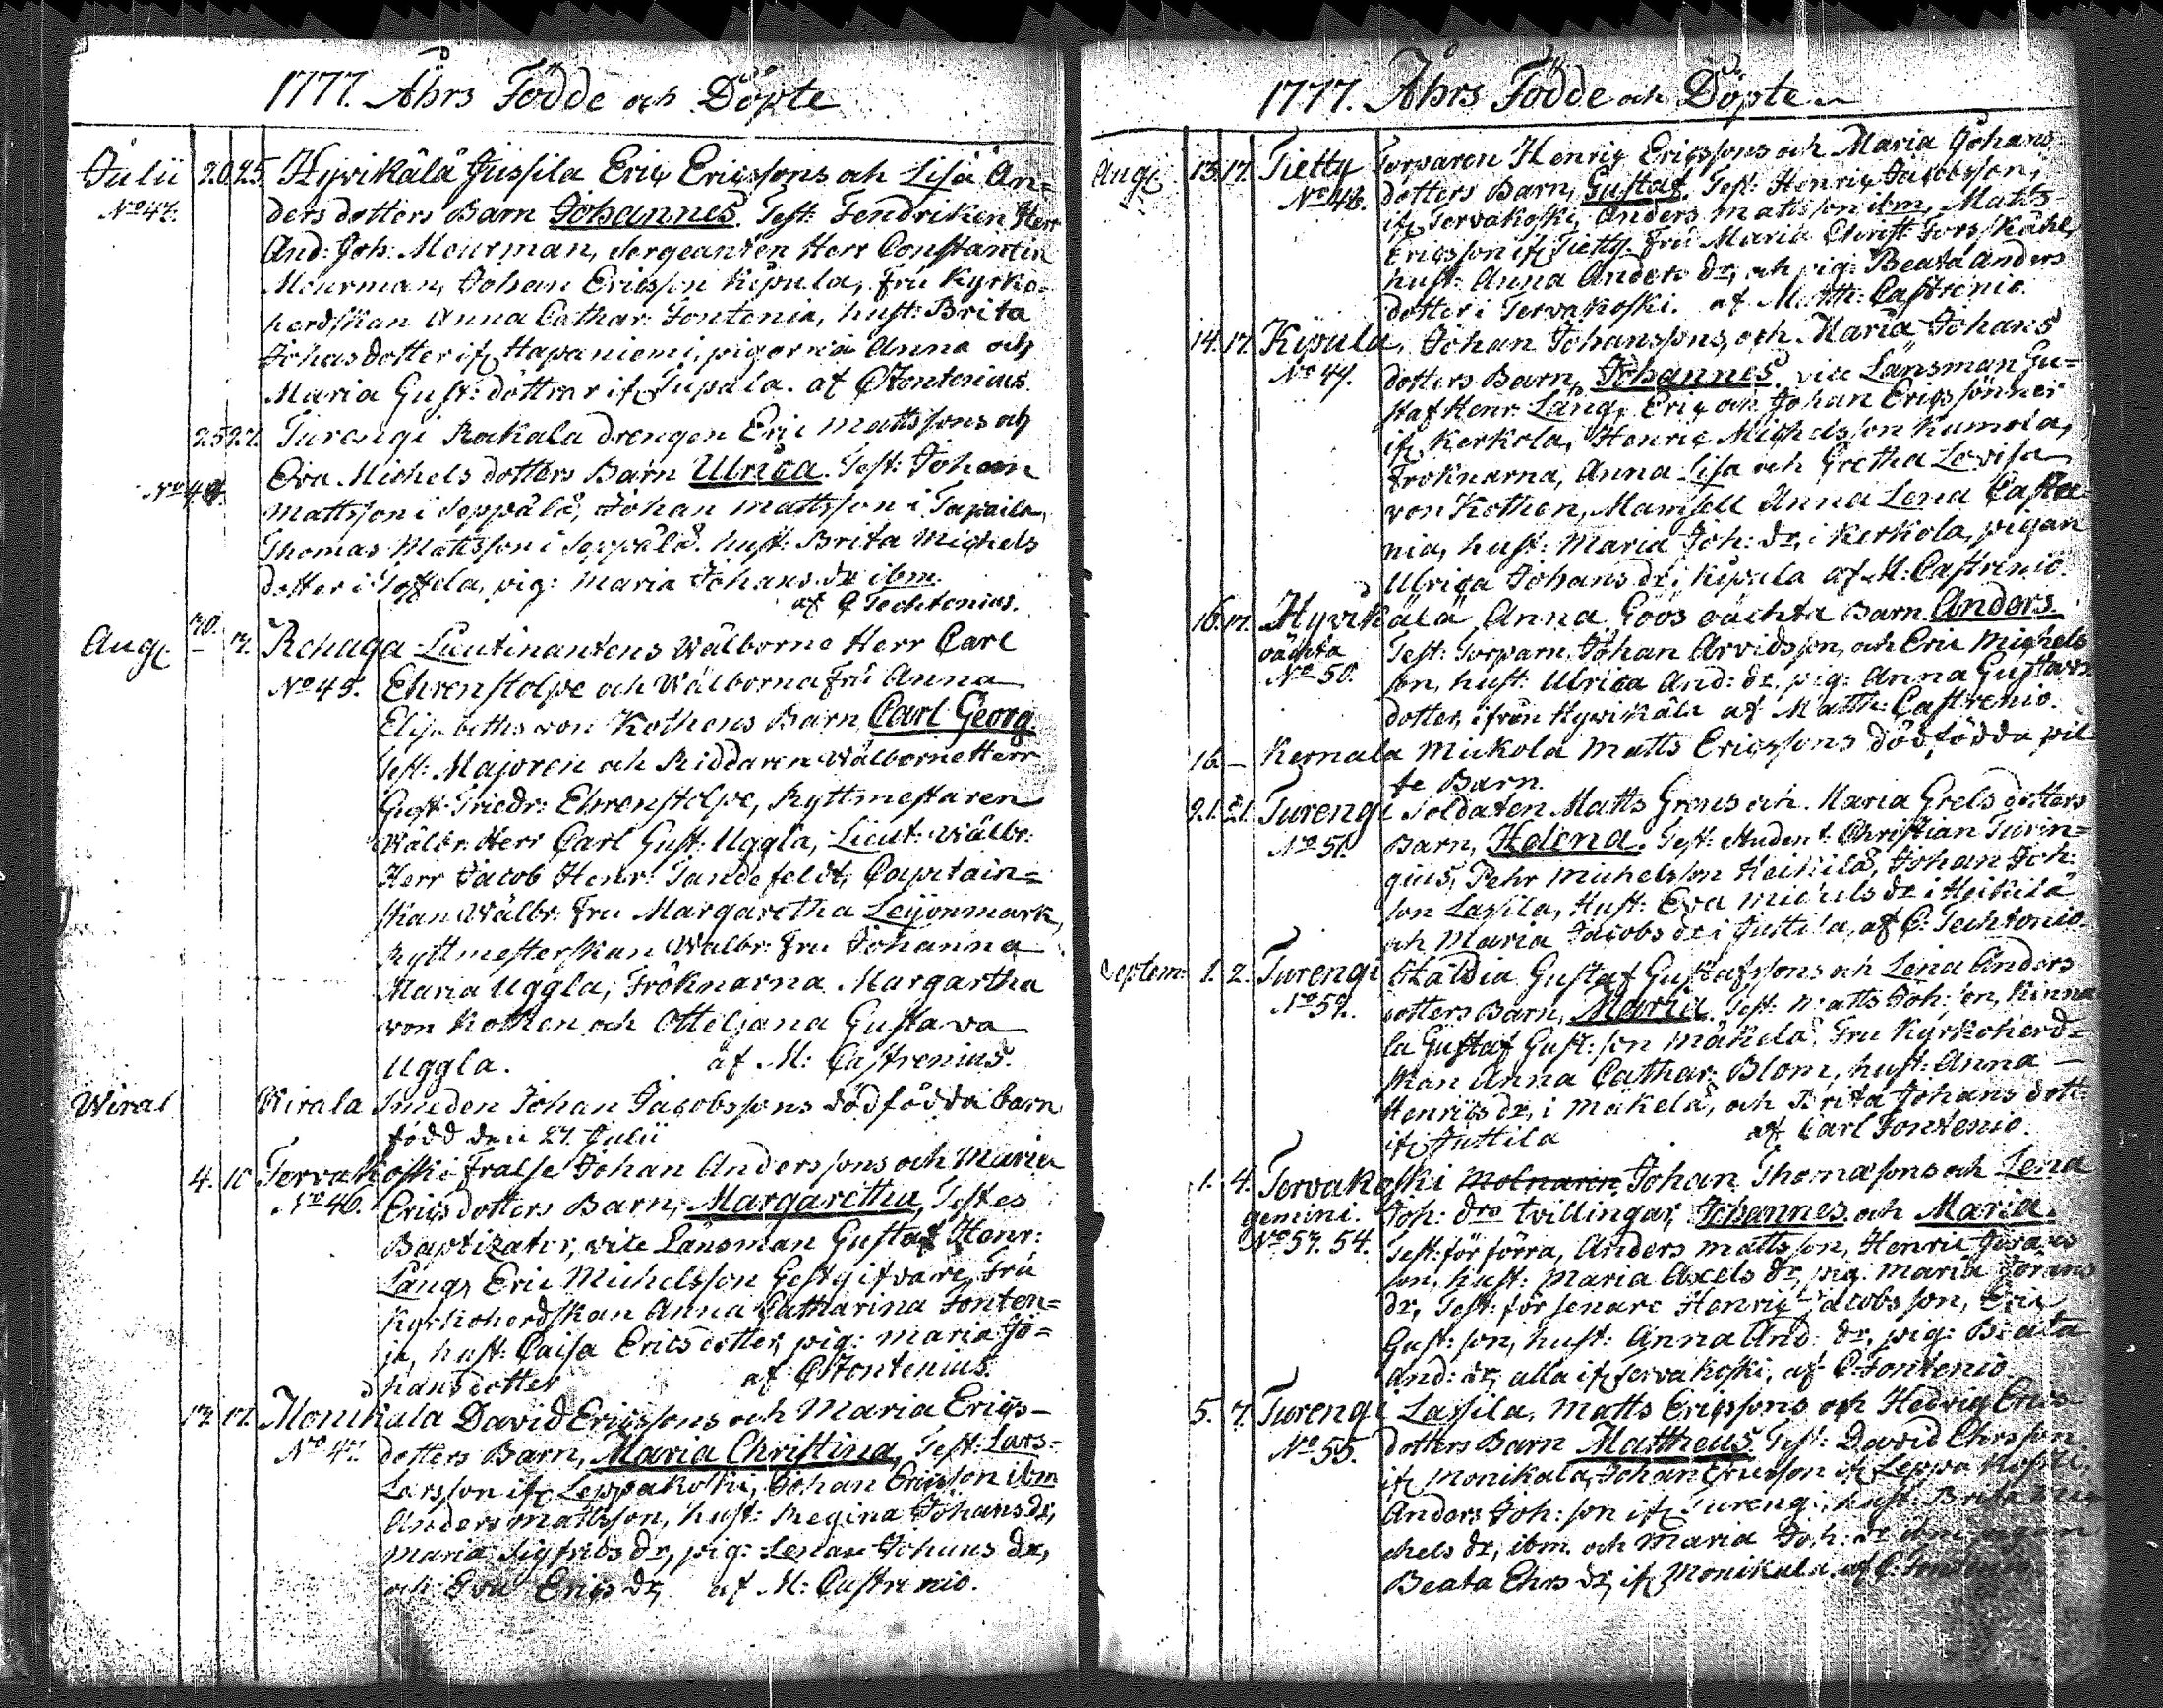 1777. Åhrs Födde och Döpte
Julii 20. 25. Hyvikälä Jussila Eric Ericssons och Lisa An=
No 47. ders dotters Barn Johannes. Test: Fendriken Herr
And: Joh: Meurman, Sergeanten Herr Constantin
Meurman, Johan Ericsson Kipula, fru Kyrko-
herdskan Anna Cathar: Fontenia, hust: Brita
Johansdotter if: Hapaniemi, pigorna Anna och
Maria Gust: döttrar if: Tupala. af C Fontenius.
25 27. Turengi Rakala drengen Eric Mattssons och
Eva Michels dotters Barn Ulrica. Test: Johan
Mattsson i Seppälä, Johan Mattsson i
Thomas Mattsson i Seppälä. hust: Brita Michels
dotter i Toffela, pig: Maria Johans dr ibm.
af C Techtonius.
Aug: 3. Rehaga Lieutinantens Wälborne Herr Carl
No 45. Ehrenstolpe och Wälborna Fru Anna
Elisabeths von Kothens Barn, Carl Georg.
Test: Majoren och Riddaren Wälborne Herr
Gust: Friedr: Ehrenstolpe, Ryttmestaren
Wälbr: Herr Carl Gust: Uggla, Lieut: Wälbr:
Herr Jacob Henr: Tandefeldt, Capitain=
skan Wälbr: Fru Margaretha Leijonmark,
Ryttmesterskan Wälbr: Fru Johanna
Maria Uggla, Fröknarna Margartha
von Kothen och Otteljana Gustava
Uggla. af M: Castrenius.
Wiral Wirala Smeden Johan Jacobssons dödfödda barn
född den 27. Julii
4. 10 Tervakoski Fralse Johan Anderssons och Maria
No 46. Ericsdotters Barn, Margaretha, Testes
Baptizator, vice Länsman Gustaf Henr:
Lång, Eric Michelsson Gestgifvare, Fru
Kyrkoherdskan Anna Catharina Fonten=
ia, hust: Caisa Ericsdotter, pig: Maria Jo=
hansdotter af C Fontenius.
13. 17. Monikala David Ericssons och Maria Erics-
No 47. dotters Barn, Maria Christina, Test: Lars
Larsson if: Leppakoski, Johan Ericsson ibm
Anders Mattsson, hust: Regina Johans dr,
Maria Sigfrids dr, pig: Lena Johans dr,
och Eva Erics dr, af M: Castrenio.
1777. Åhrs Födde och Döpte
Aug: 13. 17. Tietty Torparen Henric Ericssons och Maria Johans
No 48. dotters Barn, Gustaf. Test: Henric Jacobsson,
if: Tervakoski, Anders Mattsson ibm, Matts
Ericsson if: Tietty. Fru Maria Christ: Forsskåhl,
hust: Anna Anders dr, och pig: Beata Anders
dotter i Tervakoski. af Matth: Castrenio.
14. 17. Kipula, Johan Johanssons, och Maria Johans
No 49. dotters Barn, Johannes. vice Länsman Gu=
staf Henr: Lång, Eric och Johan Ericssönner
if: Kerkola, Henric Michelsson Kumola,
Fröknarna, Anna Lisa och Gretha Lovisa
von Kothen, Mamsell Anna Lena Castre
nia, hust: Maria Joh: dr, i Kerkola, pigan
Ulrica Johans dr i Kipula af M: Castrenio.
16. 17. Hyvikälä Anna Göös oächta Barn Anders
oächta Test: Torparn Johan Arvidsson, och Eric Michels
No 50. son, hust: Ulrica And: dr. pig: Anna Gustavs
dotter, ifrån Hyvikälä af Matth: Castrenio.
16. - Kernala Mickola Matts Ericssons dödfödda pil
te Barn.
21. 21. Turengi Soldaten Matts Grens och Maria Grels dotters
No 51. Barn, Helena. Test: Student: Christian Turin=
gius, Pehr Michelsson Heikilä, Johan Joh:
son Lassila, Hust: Eva Michels dr i Heikilä
och Maria Jacobs dr i Juttila, af C: Techtonio.
Septem: 1. 2. Turengi Ståldia Gustaf Gustafssons och Lena Anders
No 52. dotters Barn, Maria. Test: Matts Joh: son, Kinna
la Gustaf Gust: son Mäkelä. Fru Kyrkoherd=
skan Anna Cathar: Blom, hust: Anna
Henrics dr, i Mäkelä, och Brita Johans dott:
if: Juttila af Carl Fontenio.
1. 4. Tervakoski Molnaren Johan Thomæsons och Lena
gemini. Joh: drs tvillingar, Johannes och Maria.
No 53. 54. Test: för förra, Anders Mattsson, Henric Jörans
son, hust: Maria Axels dr, pig: Maria Jörans
dr, Test: för senare Henric Jacobsson, Eric
Gust: son, hust: Anna And: dr, pig: Beata
And: dr, alla if: Tervakoski, af C Fontenio
5. 7. Turengi Lassila, Matts Ericssons och Hedvig Erics
No 55. dotters Barn Mattheus. Test: David Ehrsson
if: Monikala, Johan Ericsson if: Leppakoski,
Anders Joh: son if: Turengi, hust: Brita Mi
chels dr, ibm. och Maria Joh: dr ibm pigan
Beata Ehrs dr, if: Monikala. af C: